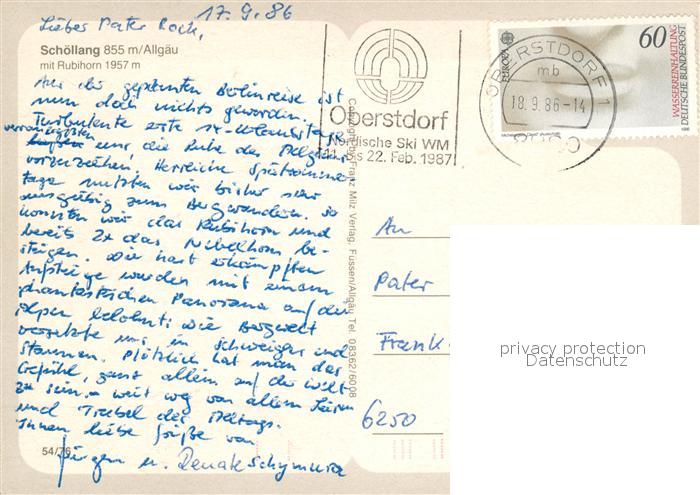 17.9.86
Liebes Pater Rock,
Schöllang 855 m/Allgäu
mit Rubihorn 1957 m
Aus der geplanten Berlinreise ist
nun doch nichts geworden.
Turbulente erste 14 Urlaubstage
veranlassten
uns die Ruhe des Allgäus
vorzuziehen. Herrliche Spätsommer
tage nutzten wir bisher sehr
ausgiebig zum Bergwandern. So
konnten wir das Rubihorn und
bereits 2x das Nebelhorn be-
steigen. Die hart erkämpften
Aufstiege wurden mit einem
phantastischen Panorama auf die
Alpen belohnt; die Bergwelt
versetzte uns in Schweigen und
Staunen. Plötzlich hat man das
Gefühl, ganz allein auf der Welt
zu sein - weit weg von allem Lärm
und Trubel des Alltags.
Ihnen liebe Grüße von
Jürgen u. Renate Schymura
54/76
Copyright by Franz Milz Verlag, Füssen/Allgäu Tel. 08362/6008
Oberstdorf
Nordische Ski WM
11. bis 22. Feb. 1987
OBERSTDORF 1
mb
18.9.86-14
EUROPA
60
WASSERREINHALTUNG
DEUTSCHE BUNDESPOST
An
Pater
Frank
6250
privacy protection
Datenschutz